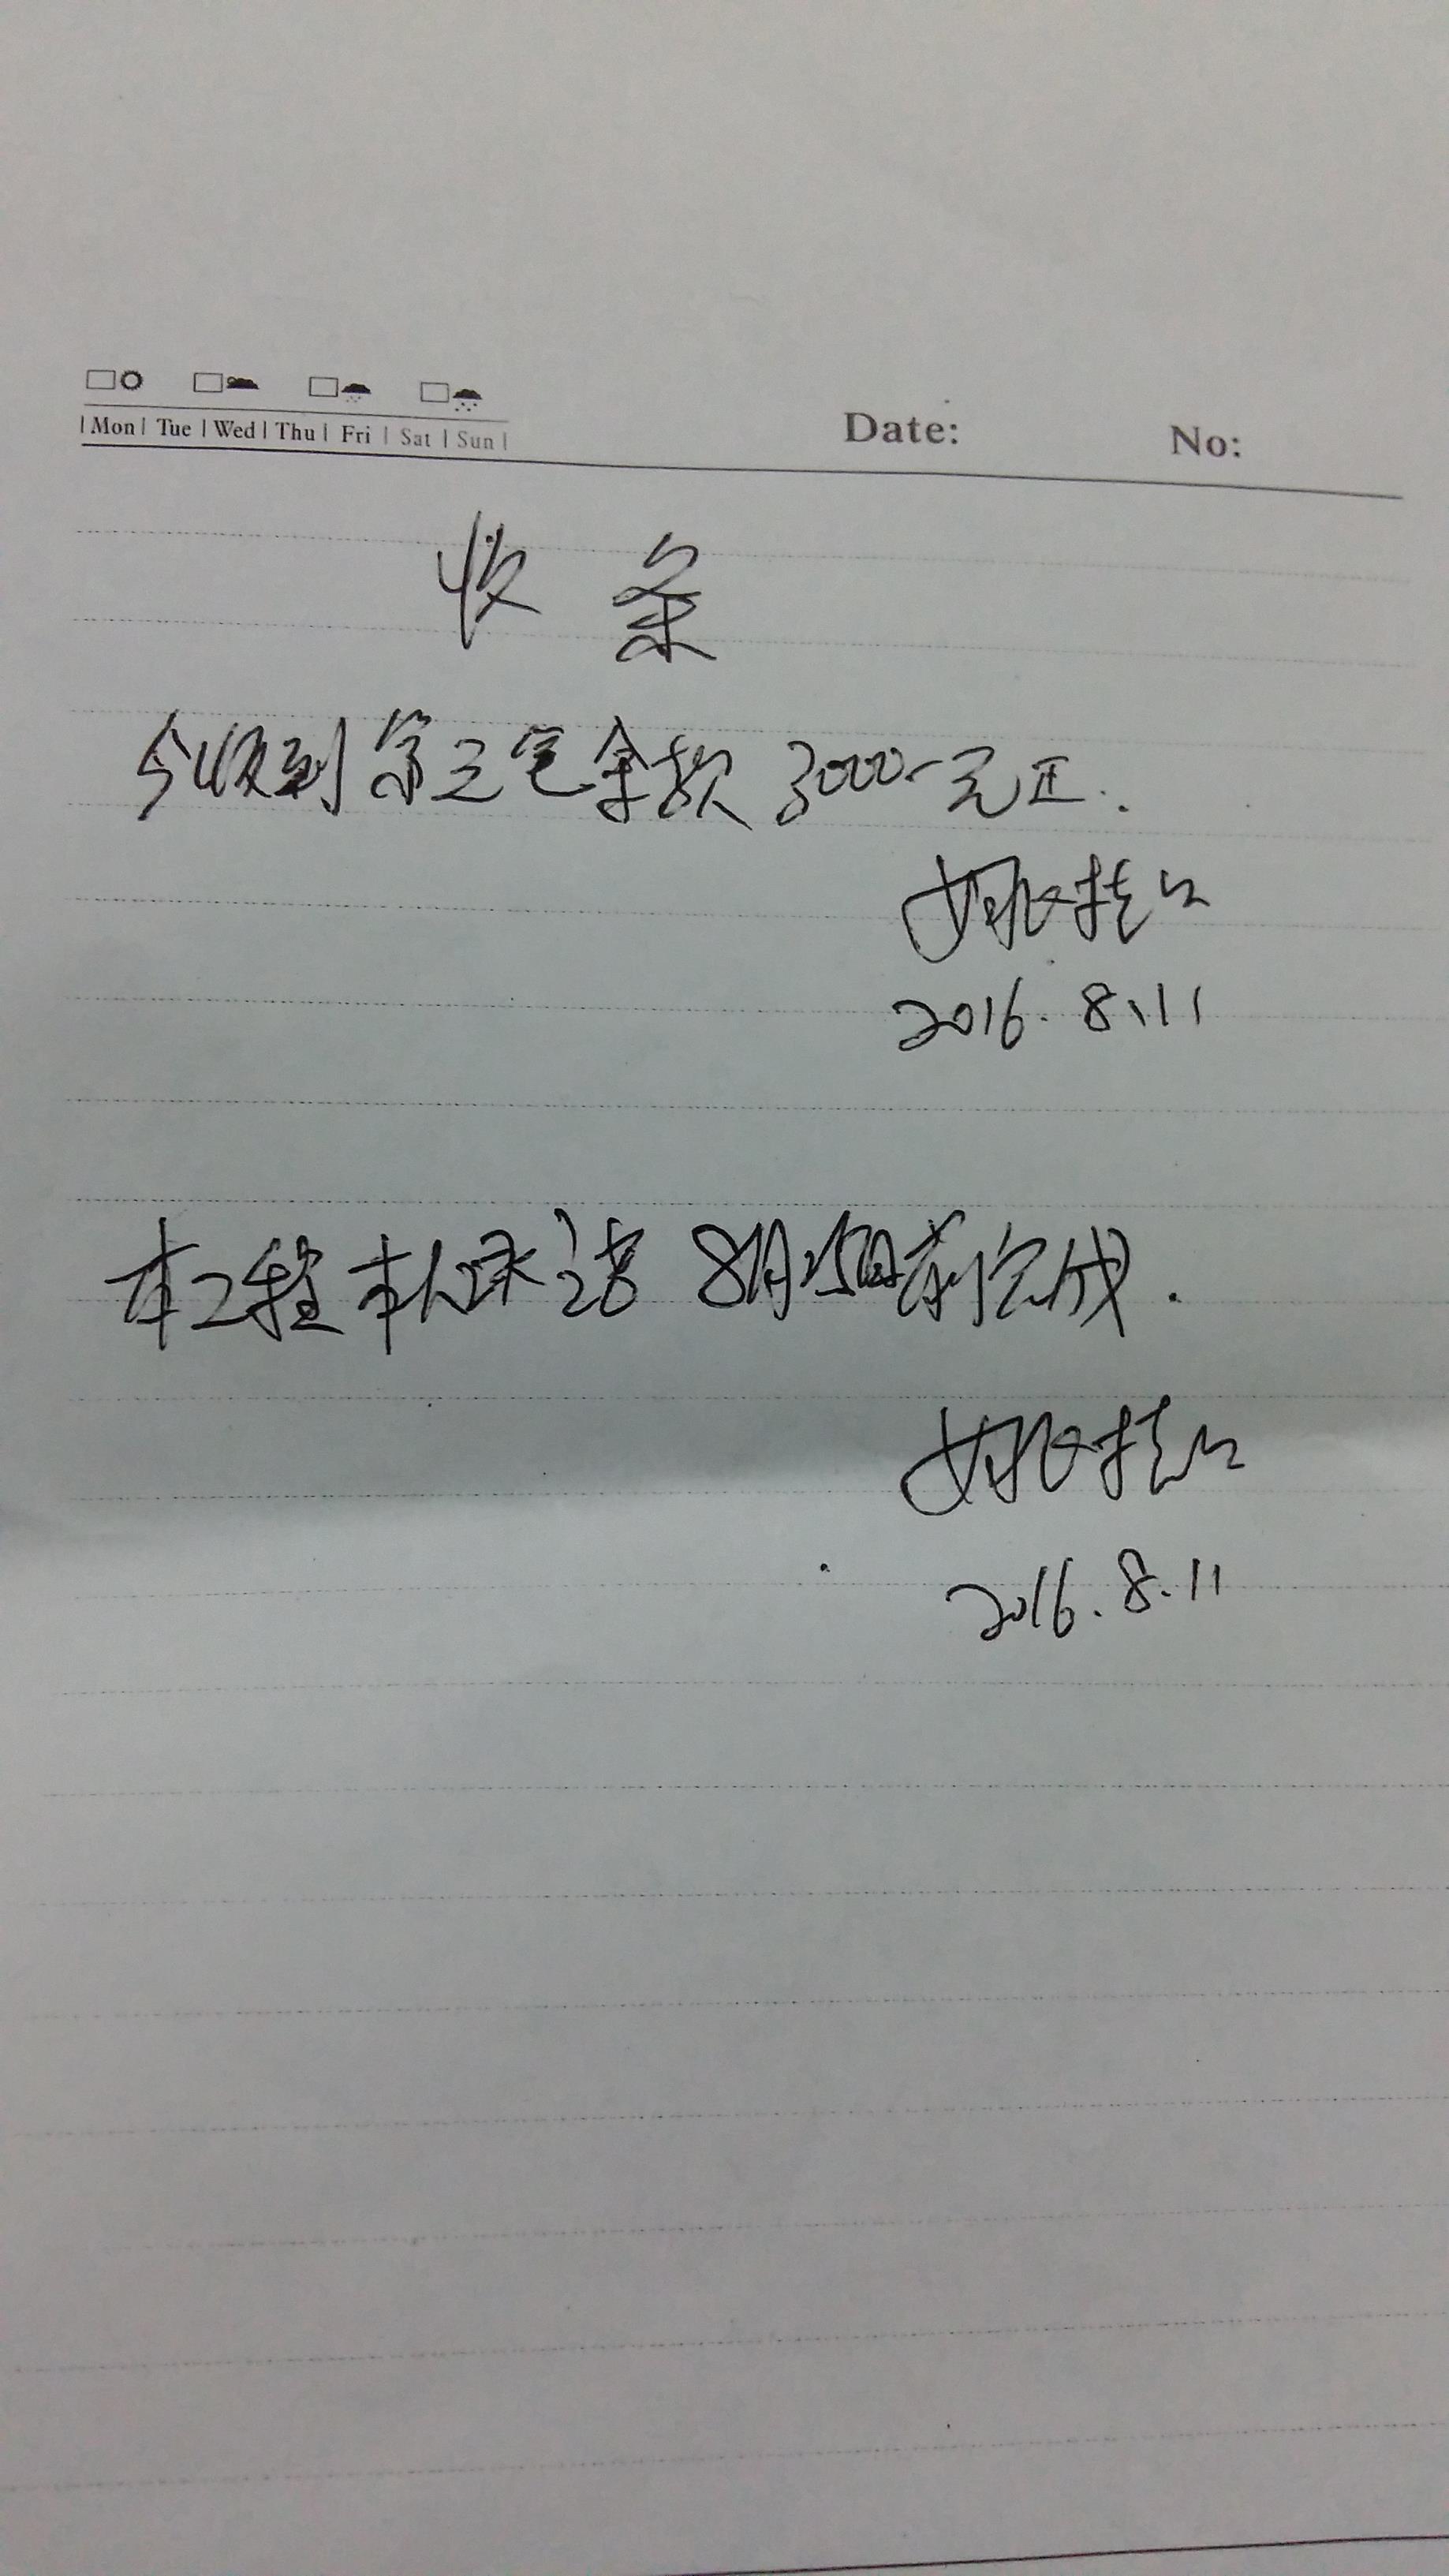 Mon Tue Wed Thu Fri Sat Sun
Date: No:
收条
今收到第三笔余款3000-元正.
2016.8.11
本工程本人承诺8月15日前完成.
2016.8.11